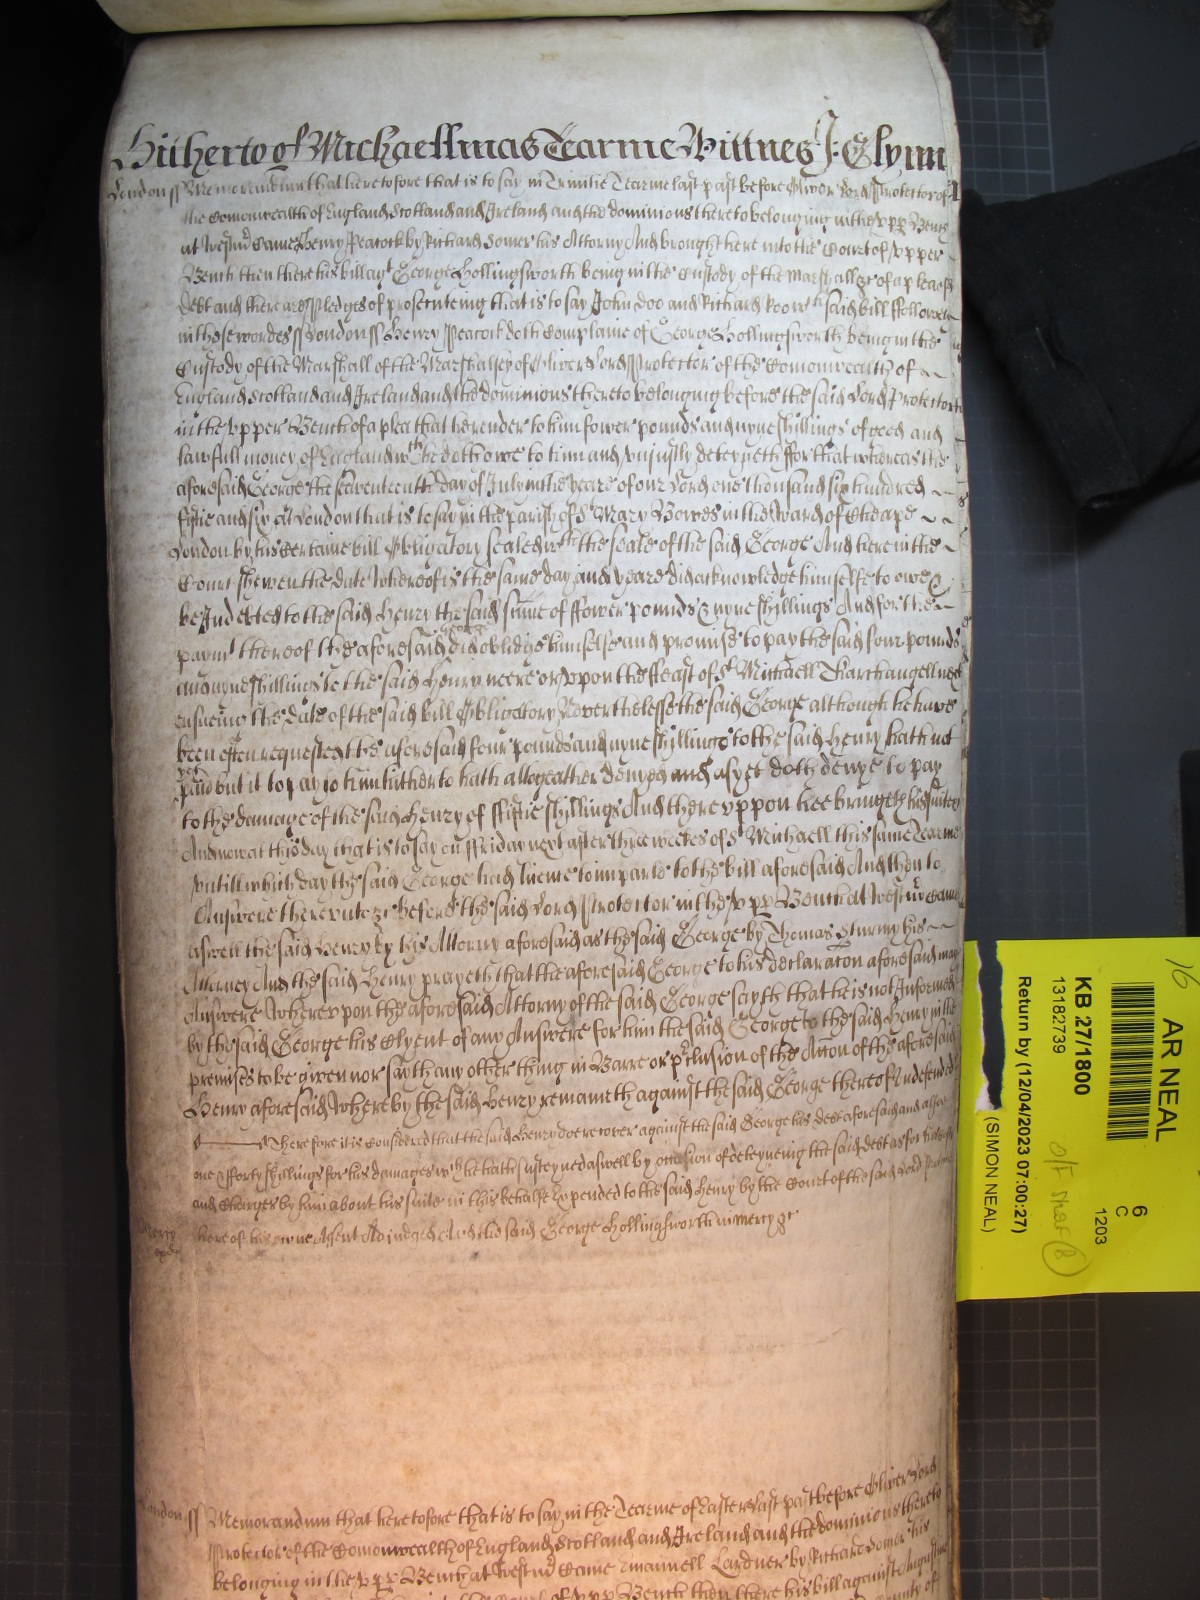 Hitherto of Michaellmas Tearme Wittnes J: Glynn
London ss Memorandum that heretofore that is to say in Trinitie Tearme last past before Oliver Lord Protector of
the Comonwealth of England Scotland and Ireland and the dominions thereto belonging in the Upp Bench
at Westmr Came Henry Peacock by Richard Somer his Attorny And brought here into the Court of Upper
Bench then there his bill agt George Hollingsworth being in the Custody of the Marshall &c of a plea of
debt and there are Pledges of prosecuteing that is to say John Doo and Richard Roo wch said bill ffolloweth
in these wordes ss London ss Henry Peacock doth Complaine of George Hollingsworth being in the
Custody of the Marshall of the Marshalsey of Oliver Lord Protector of the Comonwealth of
England Scotland and Ireland and the dominions thereto belonging before the said Lord Protector
in the Upper Bench of a plea that he render to him fower pounds and nyne shillings of good and
lawfull money of England wch he doth owe to him and uniustly deteyneth ffor that whereas the
aforesaid George the seaventeenth day of July in the yeare of our Lord one thousand six hundred
fiftie and six at London that is to say in the parish of St Mary Bowes in the Ward of Cheape
London by his certaine bill Obligatory sealed wth the seale of the said George And here in the
Court shewen the date whereof is the same day and yeare did acknowledge himselfe to owe &
be Indebted to the said Henry the said sume of ffower pounds & nyne shillings And for the
paymt thereof the aforesaid George did oblidge himselfe and promise to pay the said four pounds
and nyne shillings to the said Henry neere or uppon the ffeast of St Michaell Tharchangell next
ensueing the date of the said bill Obligatory Neverthelesse the said George although he have
been often requested the aforesaid four pounds and nyne shillings to the said Henry hath not
yet paid but it to pay to him hitherto hath altogeather denyed and as yet doth denye to pay
to the damage of the said Henry of fiftie shillings And thereuppon hee bringeth his suite &c
And now at this day that is to say on ffriday next after three weekes of St Michaell this same Tearme
untill which day the said George had lycence to imparle to the bill aforesaid And then to
Answere thereunto &c before the said Lord Protector in the Upp Bench at Westmr Came
aswell the said Henry by his Attorny aforesaid as the said George by Thomas Sturmy his
Attorney And the said Henry prayeth that the aforesaid George to his declaraton aforesaid may
Answere Whereupon the aforesaid Attorny of the said George sayth that he is not Informed
by the said George his Clyent of any Answere for him the said George to the said Henry in the
premises to be given nor sayth any other thing in Barre or pclusion of the Acton of the aforesaid
Henry aforesaid Whereby the said Henry remaineth against the said George thereof undefended
Therefore it is Considered that the said Henry doe recover against the said George his debt aforesaid and alsoe
one & fforty shillings for his damages wch he hath susteyned aswell by occasion of deteyneing the said debt as for
and Charges by him about his suite in this behalfe Expended to the said Henry by the Court of the said Lord Protector
here of his owne Assent Adiudged And the said George Hollingsworth in mercy &c
Mercy
London ss Memorandum that heretofore that is to say in the Tearme of Easter last past before Oliver Lord
Protector of the Comonwealth of England Scotland and Ireland and the dominions thereto
belonging in the Upp Bench at Westmr Came Emanuell Lardner by Richard Somer his
Court of Upp Bench then there his bill against Augustine
County of
16
AR NEAL
KB 27/1800
13182739
Return by (12/04/2023 07:00:27)
(SIMON NEAL)
6
C
1203